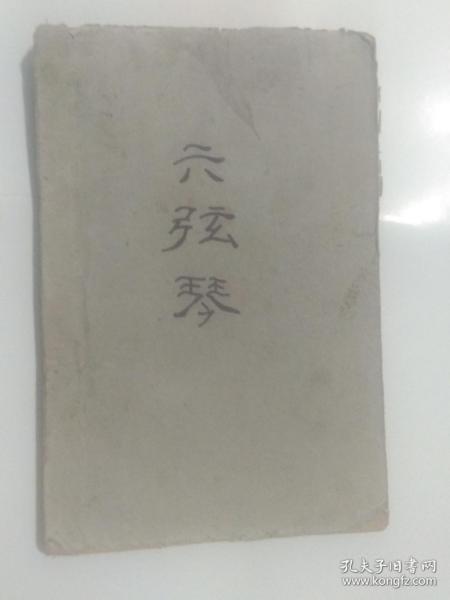 六弦琴
孔夫子旧书网
www.kongfz.com